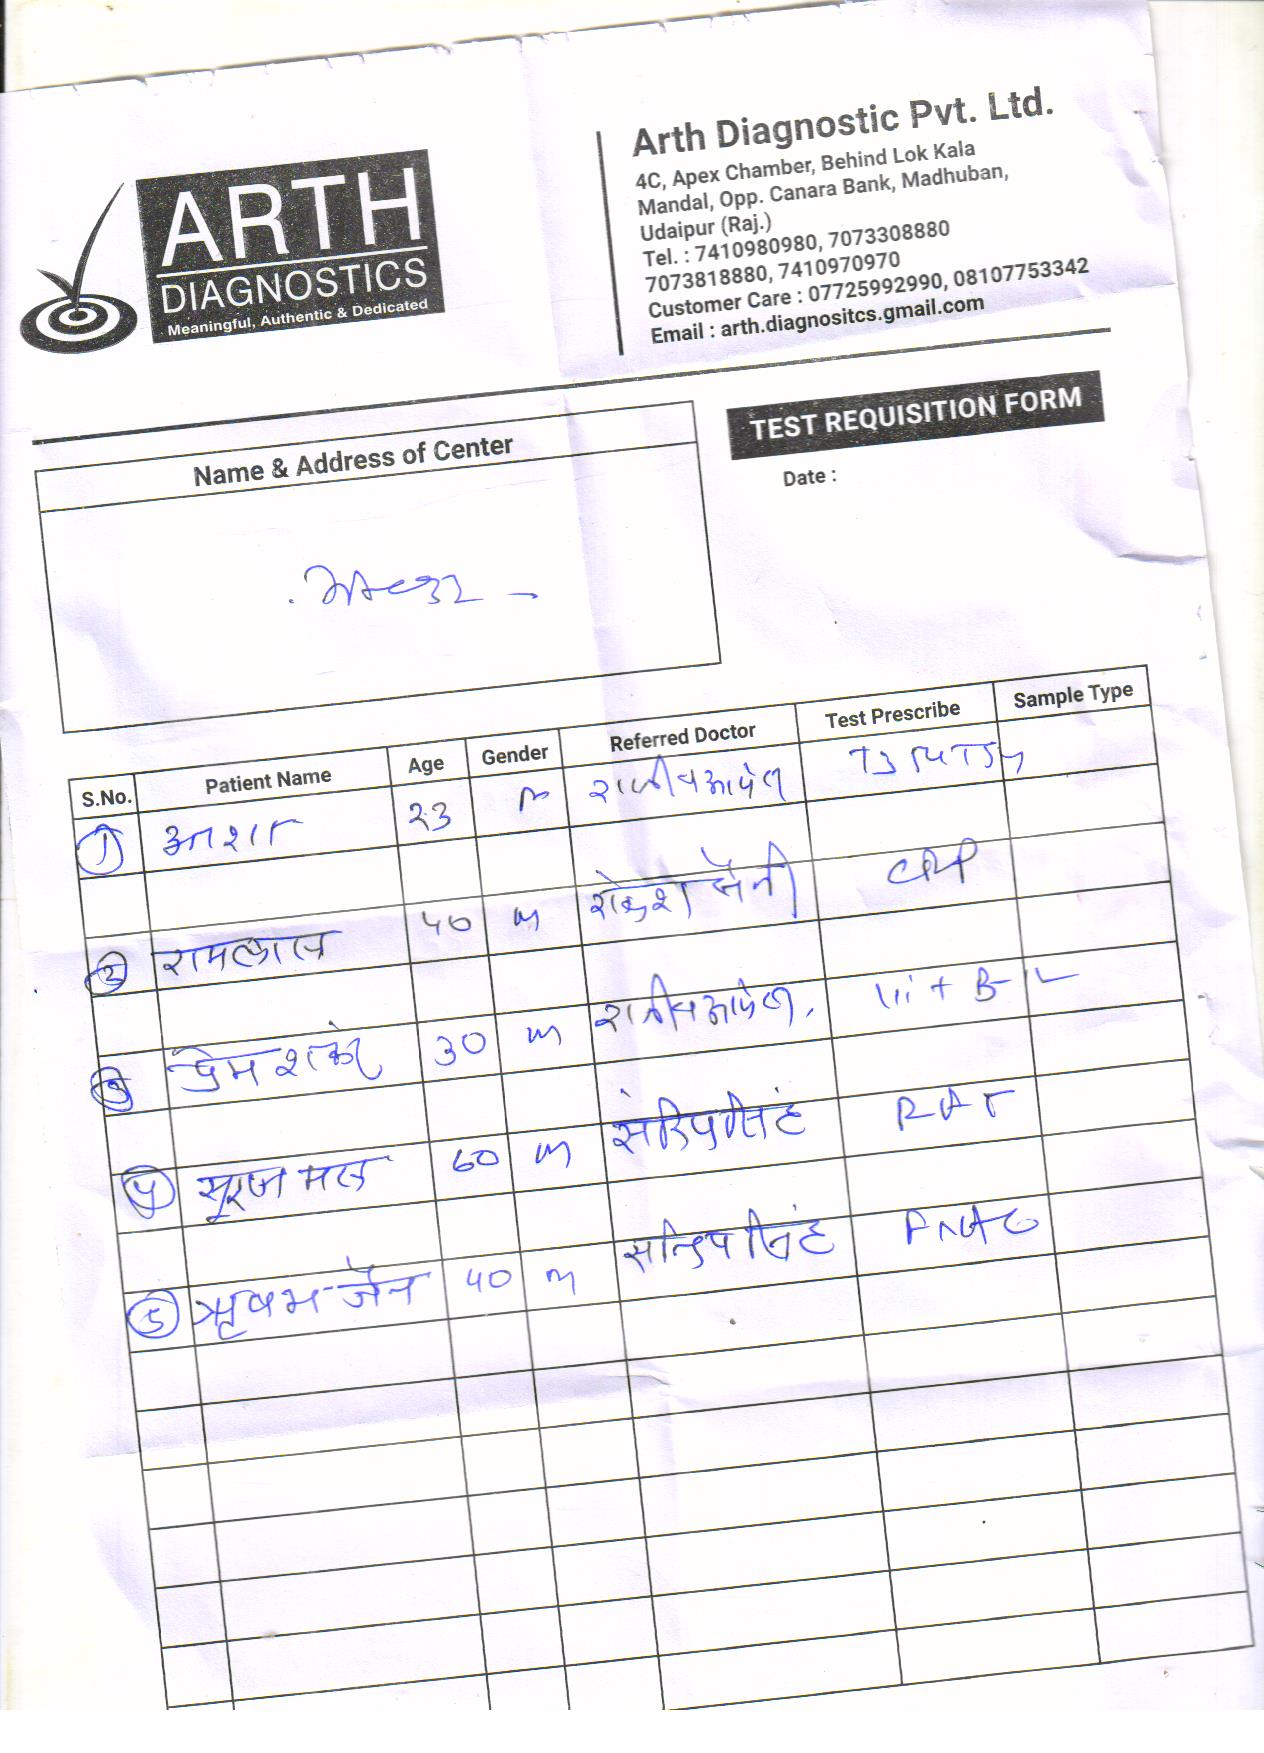 ARTH
DIAGNOSTICS
Meaningful, Authentic & Dedicated
Arth Diagnostic Pvt. Ltd.
4C, Apex Chamber, Behind Lok Kala
Mandal, Opp. Canara Bank, Madhuban,
Udaipur (Raj.)
Tel. : 7410980980, 7073308880
7073818880, 7410970970
Customer Care : 07725992990, 08107753342
Email : arth.diagnositcs.gmail.com
TEST REQUISITION FORM
Date :
Name & Address of Center
S.No. Patient Name Age Gender Referred Doctor Test Prescribe Sample Type
1 आशा 23 T3 T4 TSH
2 रामलाल 40 m राकेश सैनी CRP
3 प्रेम शंकर 30 m Vit B-12
4 सूरज मल 60 m सिंह
5 ऋषभ जैन 40 m सन्दिप सिंह FNAC